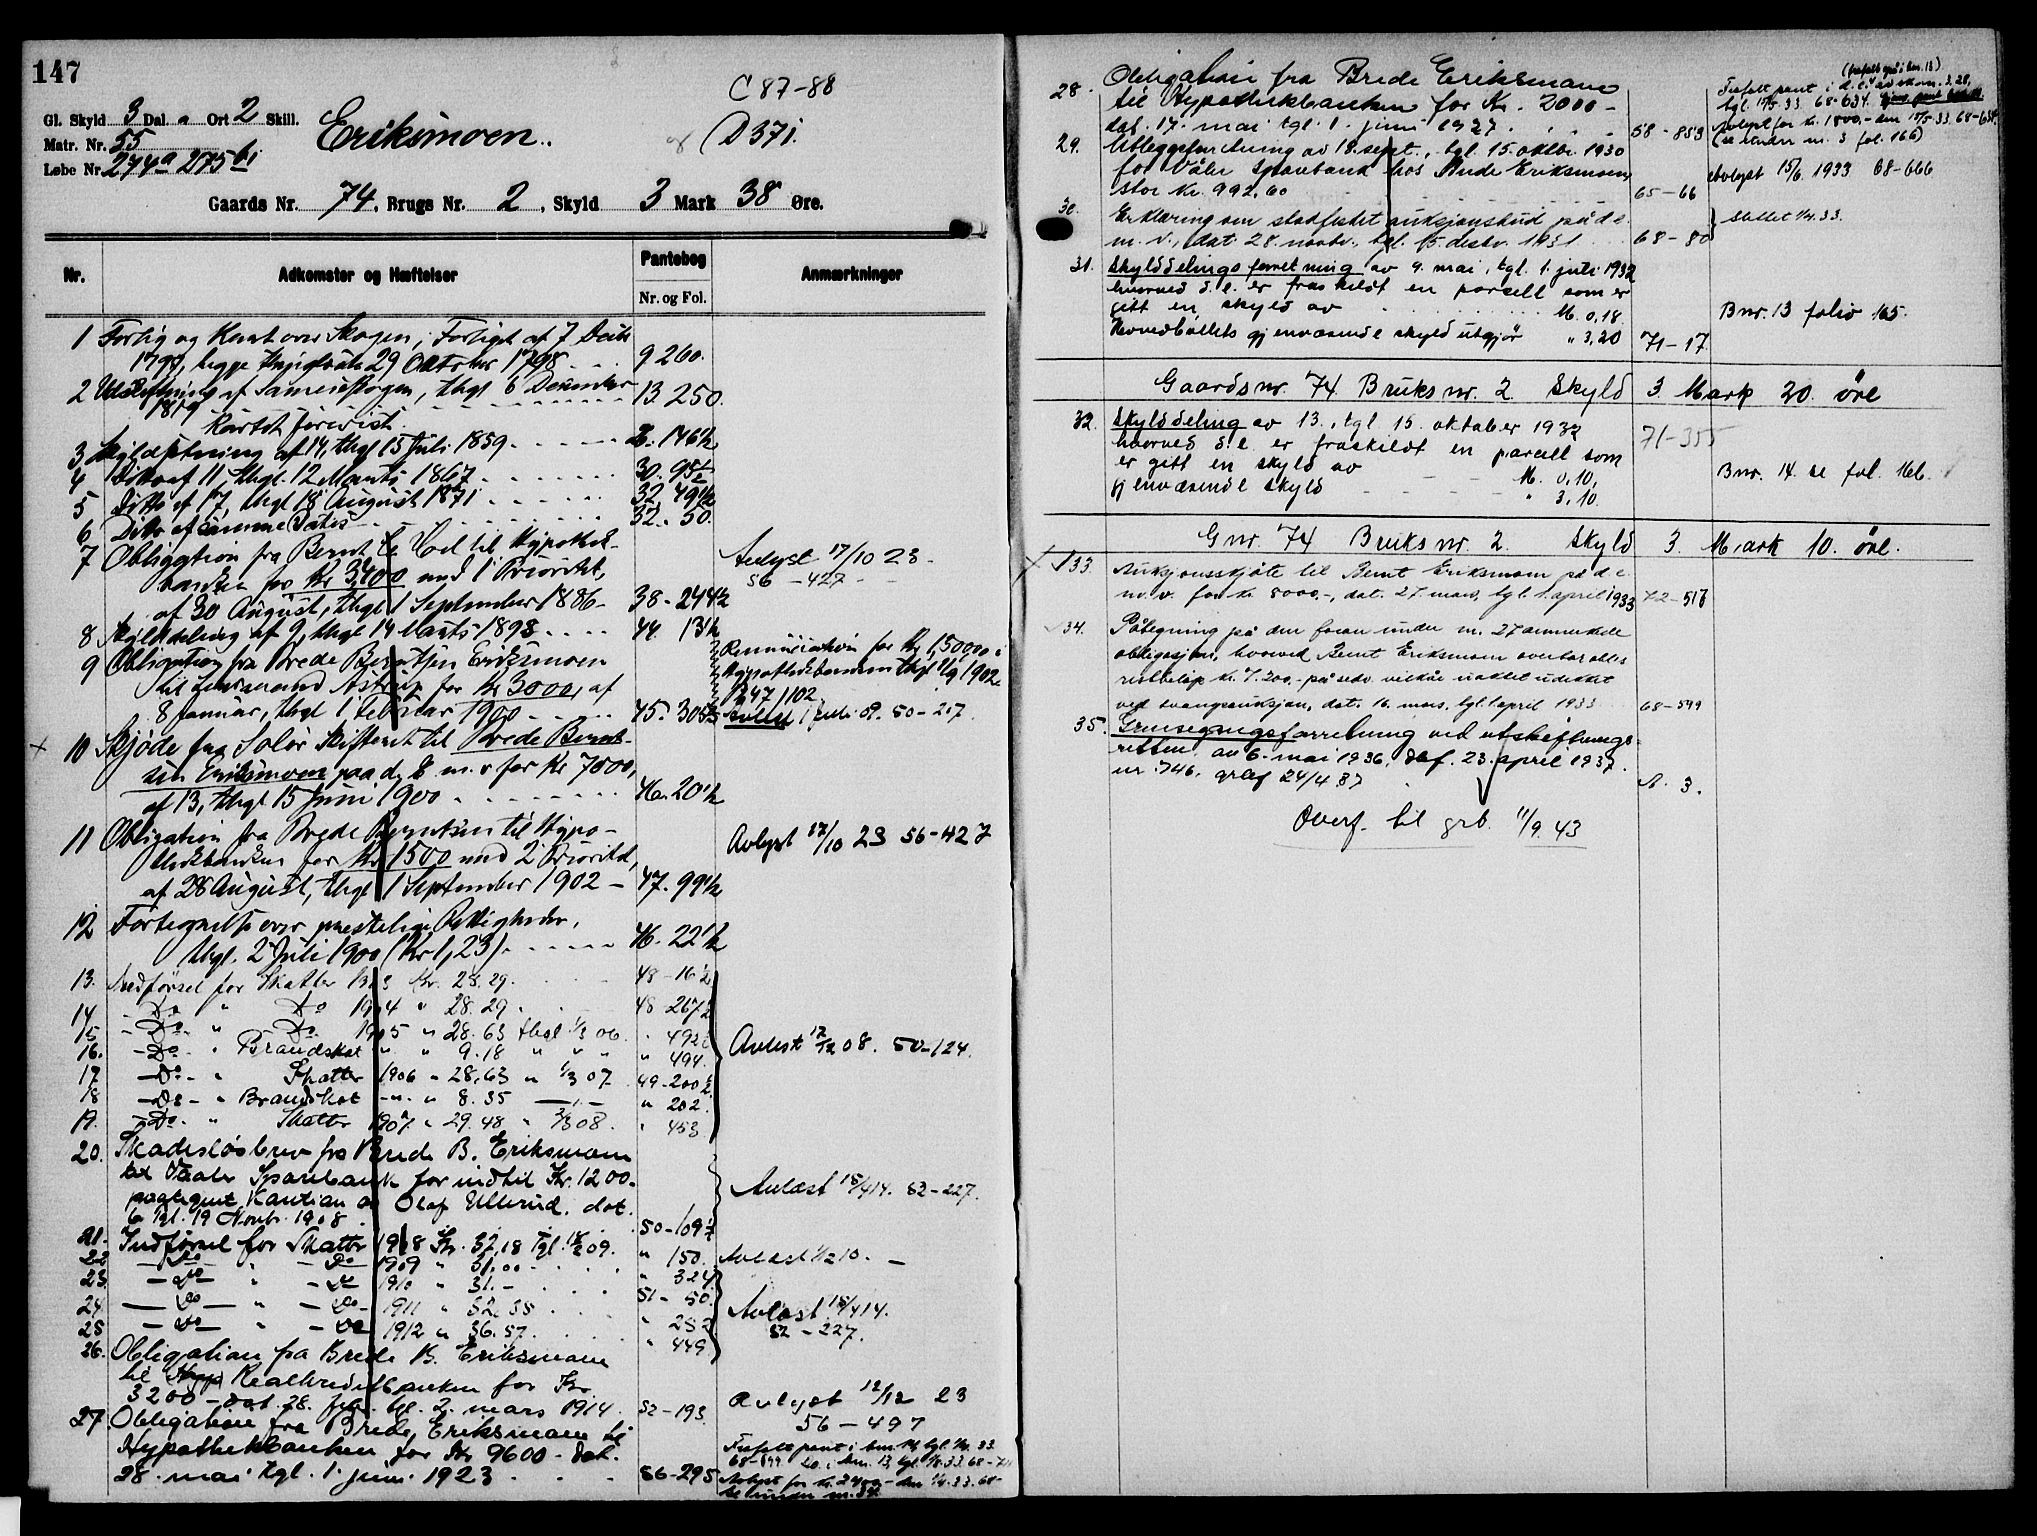 147
C 87-88
D 371.
Gl. Skyld 3 Dal. " Ort 2 Skill.
Matr. Nr. 55
Løbe Nr. 274a 275b1
Eriksmoen.
Gaards Nr. 74, Brugs Nr. 2, Skyld 3 Mark 38 Øre.
Nr. Adkomster og Hæftelser Pantebog Nr. og Fol. Anmærkninger
1 Forlig og Kart over Skogen, Forliget af 7
1797, begge 29 Oktober 1798 9 260.
2 Udskiftning af Sameieskogen, thgl 6 December
1819 13 250.
Kartet forevist.
3 Skyldsetning af 14, thgl 15 Juli 1859. B. 146½
4 Ditto af 11, thgl. 12 Marts 1867 30. 95½
5 Ditto af 17, thgl 18 August 1871 32. 49½
6 Ditto af samme Datis 32. 50.
7 Obligation fra Bernt til Hypothek-
banken for Kr 3400 med 1 Prioritet,
af 30 August, thgl 1 September 1886 38-244½
Avlyst 17/10 23
56-427
8 Skylddeling af 9, thgl 14 Marts 1893 44. 13½
9 Obligation fra Brede Berntsen Eriksmoen
til Astrup for Kr 3000, af
8 Januar, thgl 1 Februar 1900 45. 305½
Renunciation for Kr 1,500 00 i
Hypothekbanken thgl 1/9 1902
47/102
Avlest 1 Juli 09. 50-217.
10 Skjøde fra Solør Skifteret til Brede Bernt-
sen Eriksmoen paa d. E. m. v for Kr 7000,
af 13, thgl 15 Juni 1900 46. 20½
11 Obligation fra Brede Berntsen til Hypo-
thekbanken for Kr 1500 med 2 Prioritet,
af 28 August, thgl 1 September 1902 47. 99½
Avlyst 17/10 23 56-427
12 Fortegnelse over prestelige Rettigheder,
thgl. 2 Juli 1900 (Kr 1,23) 46. 22½
13. Indførsel for Skatter 1903 Kr. 28.29. 48-16½
14 - Do " Do 1904 " 28.29. 48 267½
15 - Do - " Do 1905 " 28.63 thgl 1/3 06. " 492½
16. - Do - " Brandskat " " 9.18 " " " " 494.
17 - Do - " Skatter 1906 " 28.63 " 1/3 07 49-200½
18 - Do - " Brandskat - " - " 8.35 " 202.
19. - Do - " Skatter 1907. " 29.48 " 3/3 08. " 453
Avlest 12/12 08. 50-124.
20. Skadesløsbrev fra Brede B. Eriksmoen
til Vaaler Sparebank for indtil Kr. 1200.
paategnet Kaution av Olaf Ullerud. dat.
6 tgl. 19 Novbr. 1908 50-109½
Avlæst 15/4 14. 52-227.
21. Indførsel for Skatter 1908 Kr. 32,18 tgl. 18/2 09. " 150. Avlæst 1/2 10.
22 - Do - Do 1909 " 31,00 " 324
23 - Do - " - Do 1910 " 31.- 51- 50.
24 - Do - " - Do - 1911 " 32.35 " 252
25 - Do - " - Do 1912 " 36.57. " 449
Avlæst 15/4 14.
52-227.
26. Obligation fra Brede B. Eriksmoen
til Realkreditbanken for Kr.
3200 - dat. 28. febr. tgl. 2. mars 1914. 52-193.
Avlyst 12/12 23
56-497
27. Obligation fra Brede Eriksmoen til
Hypothekbanken for Kr 9600 - dat.
28. mai tgl. 1. juni 1923 56-295
Frafalt pant i bnr. 14, tgl. 33.
Avlyst for kr. 2400 - den 33. 68-
se under nr. 34
28. Obligation fra Brede Eriksmoen
til Hypothekbanken for Kr. 2000-
dat. 17. mai tgl. 1. juni 1927. 58-853
Frafalt pant i
tgl. 15/5 33. 68-634.
Avlyst for kr. 1800.- den 15/5 33. 68-634
(se under nr. 3 fol. 166)
29. Utleggsforretning av 18. sept., tgl. 15. oktbr. 1930
for Våler Sparebank hos Brede Eriksmoen
stor kr. 992,60 65-66
Avlyst 15/6. 1933 68-666
30. Erklæring om stadfestet auksjonsbud på d. e.
m. v., dat. 28. novbr., tgl. 15. desbr. 1931 68-80
Slettet 1/4.33.
31. Skylddelingsforretning av 9. mai, tgl. 1. juli 1932
hvorved d. e. er fraskildt en parsell som er
gitt en skyld av M. 0,18
Hovedbølets gjenværende skyld utgjør " 3,20 71-17.
Bnr. 13 folio 165.
Gaardsnr. 74 Bruksnr. 2. Skyld 3 Mark 20. öre
32. Skylddeling av 13., tgl 15. oktober 1932
hvorved d. e. er fraskildt en parsell som
er gitt en skyld av M. 0,10,
gjenværende skyld " 3,10.
71-355
Bnr. 14. se fol. 166.
Gnr. 74 Bruksnr. 2. Skyld 3. Mark 10. öre.
33. Auksjonsskjøte til Bernt Eriksmoen på d. e.
m. v. for kr. 8000.-, dat. 27. mars, tgl. 1. april 1933 72-516
34. Påtegning på den foran under nr. 27 anmerkede
obligasjon, hvorved Bernt Eriksmoen overtar dens
restbeløp kr. 7.200.- på sedv. vilkår
ved tvangsauksjon, dat. 16. mars, tgl. 1 april 1933 68-599
35. Grensegangsforretning ved utskiftnings-
retten av 6. mai 1936, dgf. 23. april 1937.
nr. 746. tgl 24/4 37 A. 3.
Overf. til grb. 11/9. 43